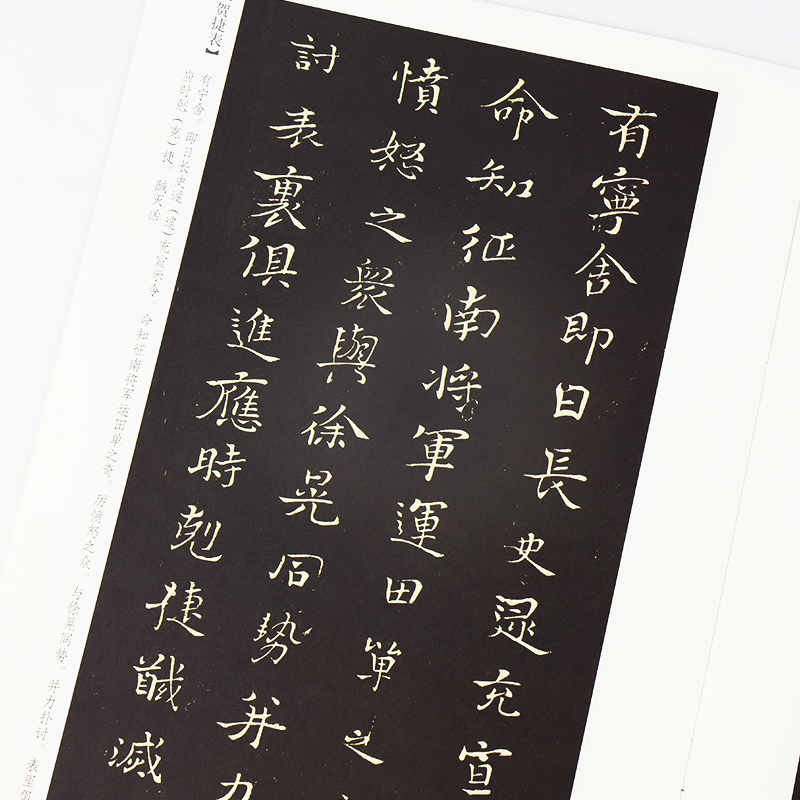 有寧舍即日長史逯充宣
命知征南將軍運田單之
憤怒之衆與徐晃同勢并力
討表裏俱進應時剋捷馘滅
贺捷表】
有宁舍。即日长史逯（逮）充宣示令。命知征南将军运田单之奇。厉愤怒之众。与徐晃同势。并力扑讨。表里俱
应时剋（克）捷。馘灭凶